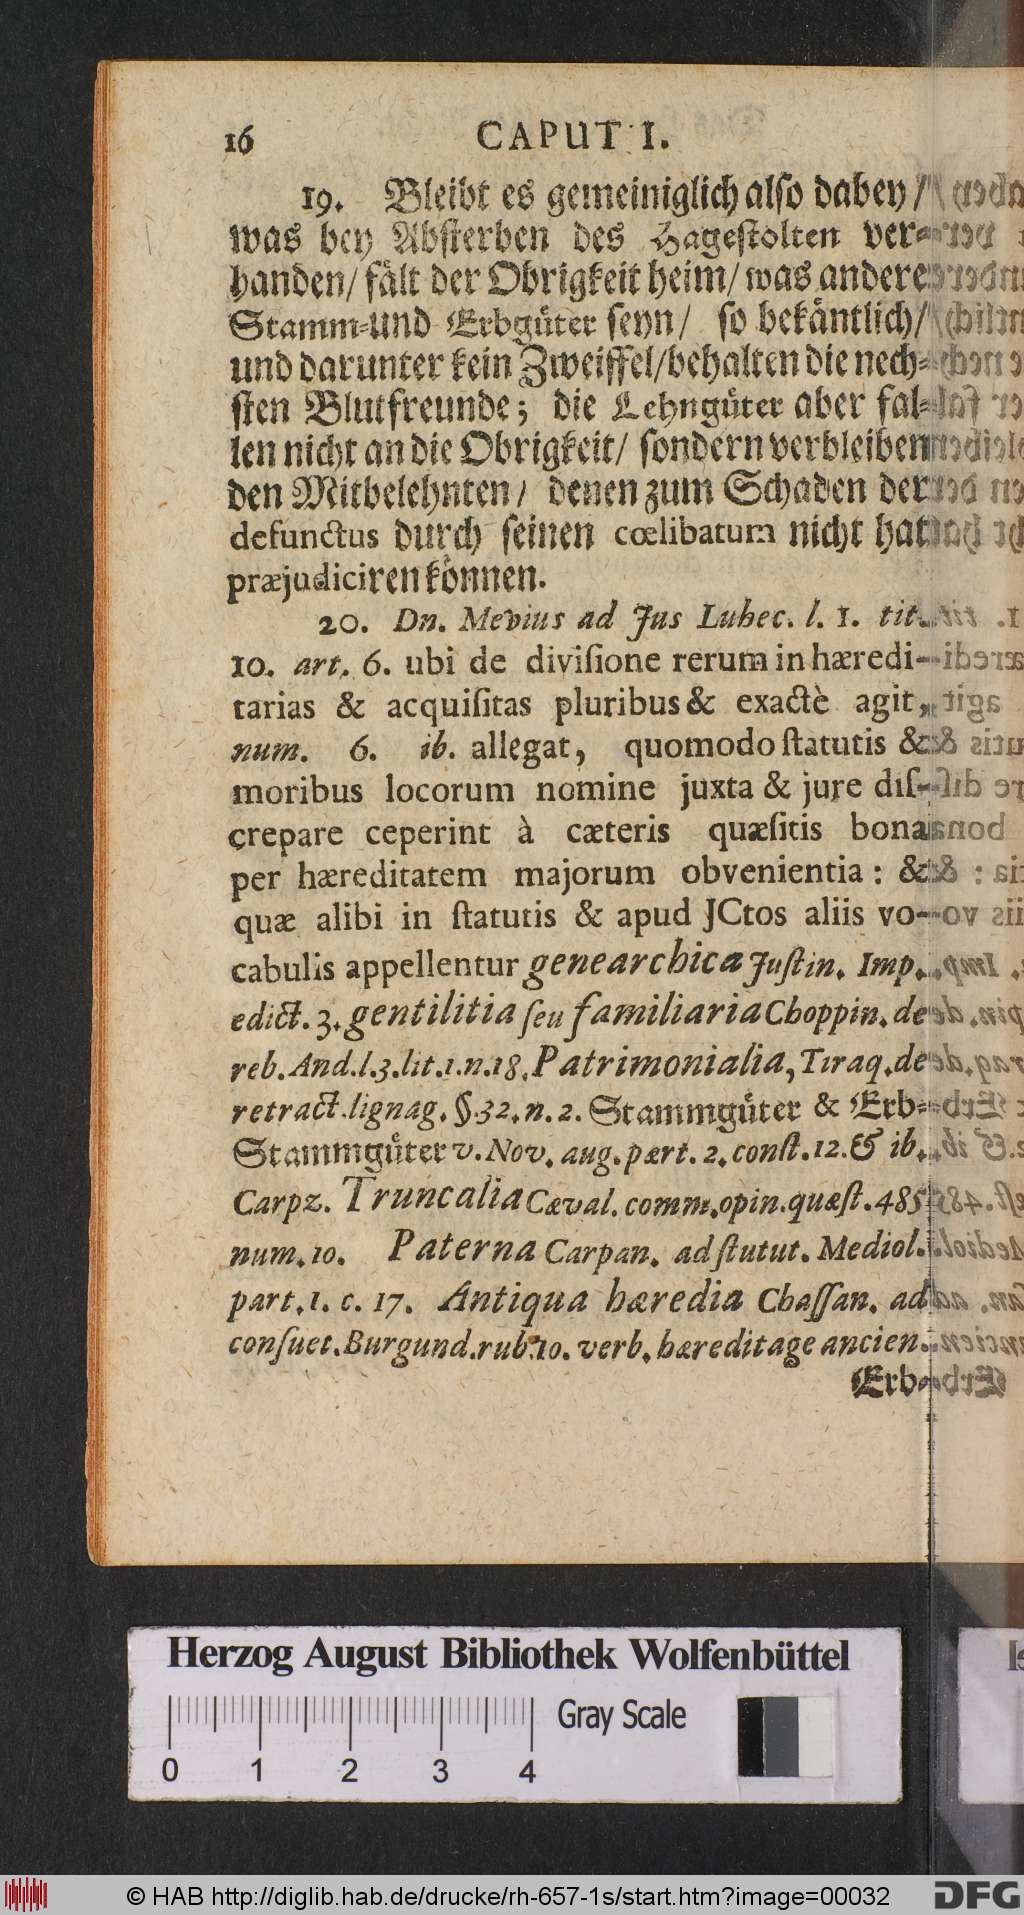 16 CAPUT I.
19. Bleibt es gemeiniglich also dabey /
was bey Absterben des Hagestolten ver-
handen / fält der Obrigkeit heim / was andere
Stamm-und Erbgüter seyn / so bekäntlich /
und darunter kein Zweiffel / behalten die nech-
sten Blutfreunde; die Lehngüter aber fal-
len nicht an die Obrigkeit / sondern verbleiben
den Mitbelehnten / denen zum Schaden der
defunctus durch seinen cœlibatum nicht hat
præjudiciren können.
20. Dn. Mevius ad Jus Lubec. l. 1. tit.
10. art. 6. ubi de diviſione rerum in hæredi-
tarias & acquiſitas pluribus & exactè agit,
num. 6. ib. allegat, quomodo ſtatutis &
moribus locorum nomine juxta & jure diſ-
crepare ceperint à cæteris quæſitis bona
per hæreditatem majorum obvenientia : &
quæ alibi in ſtatutis & apud JCtos aliis vo-
cabulis appellentur genearchica Juſtin. Imp.
edict. 3. gentilitia ſeu familiaria Choppin. de
reb. And. l. 3. lit. 1. n. 18. Patrimonialia, Tiraq. de
retract. lignag. §. 32. n. 2. Stammgüter & Erb-
Stammgüter v. Nov. aug. part. 2. conſt. 12. & ib.
Carpz. Truncalia Cæval. comm. opin. quæſt. 485
num. 10. Paterna Carpan. ad ſtutut. Mediol.
part. 1. c. 17. Antiqua hæredia Chaſſan. ad
conſuet. Burgund. rub. 10. verb. hæreditage ancien.
Erb-
Herzog August Bibliothek Wolfenbüttel
Gray Scale
0 1 2 3 4
© HAB http://diglib.hab.de/drucke/rh-657-1s/start.htm?image=00032
DFG